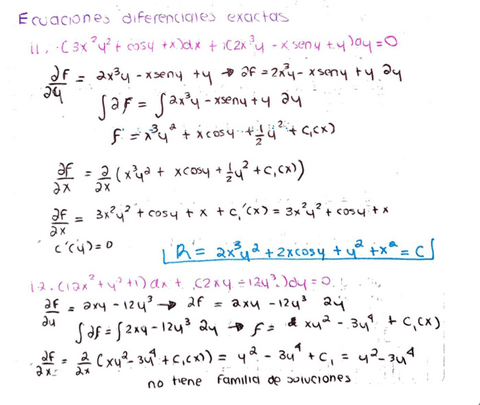 Ecuaciones diferenciales exactas
11. (3x²y² + cosy + x)dx + (2x³y - xseny + y)dy = 0
∂F/∂y = 2x³y - xseny + y → ∂F = 2x³y - xseny + y ∂y
∫∂F = ∫2x³y - xseny + y ∂y
f = x³y² + xcosy + 1/2 y² + C₁(x)
∂F/∂x = ∂/∂x (x³y² + xcosy + 1/2 y² + C₁(x))
∂F/∂x = 3x²y² + cosy + x + C₁'(x) = 3x²y² + cosy + x
C'(y) = 0
R = 2x³y² + 2xcosy + y² + x² = C
12. (12x² + y³ + 1)dx + (2xy = 12y³)dy = 0
∂F/∂y = 2xy - 12y³ → ∂F = 2xy - 12y³ ∂y
∫∂F = ∫2xy - 12y³ ∂y → f = xy² - 3y⁴ + C₁(x)
∂F/∂x = ∂/∂x (xy² - 3y⁴ + C₁(x)) = y² - 3y⁴ + C₁ = y² - 3y⁴
no tiene familia de soluciones